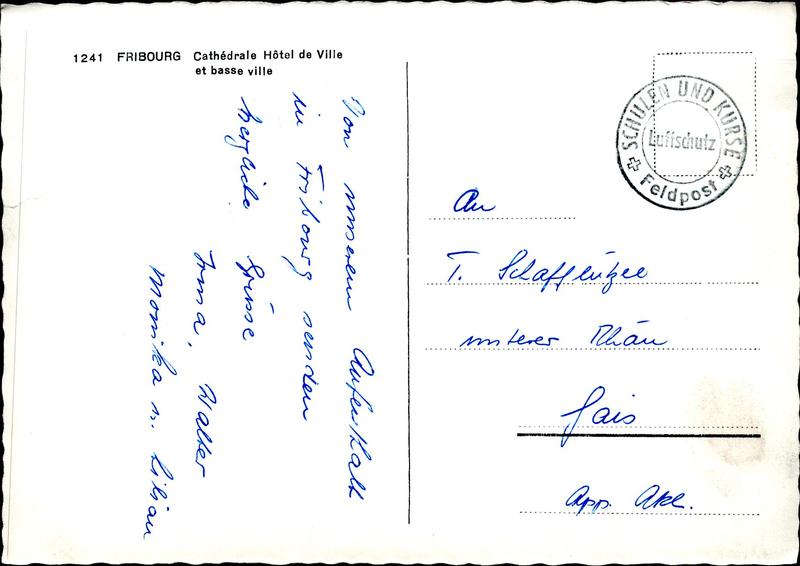 1241 FRIBOURG Cathédrale Hôtel de Ville
et basse ville
Von unserem Aufenthalt
in Fribourg senden
herzliche Grüsse
Irma, Walter
Monika u. Lilian
SCHULEN UND KURSE
Luftschutz
Feldpost
An
T. Schafflützel
unterer Rhän
Gais
App. ARh.